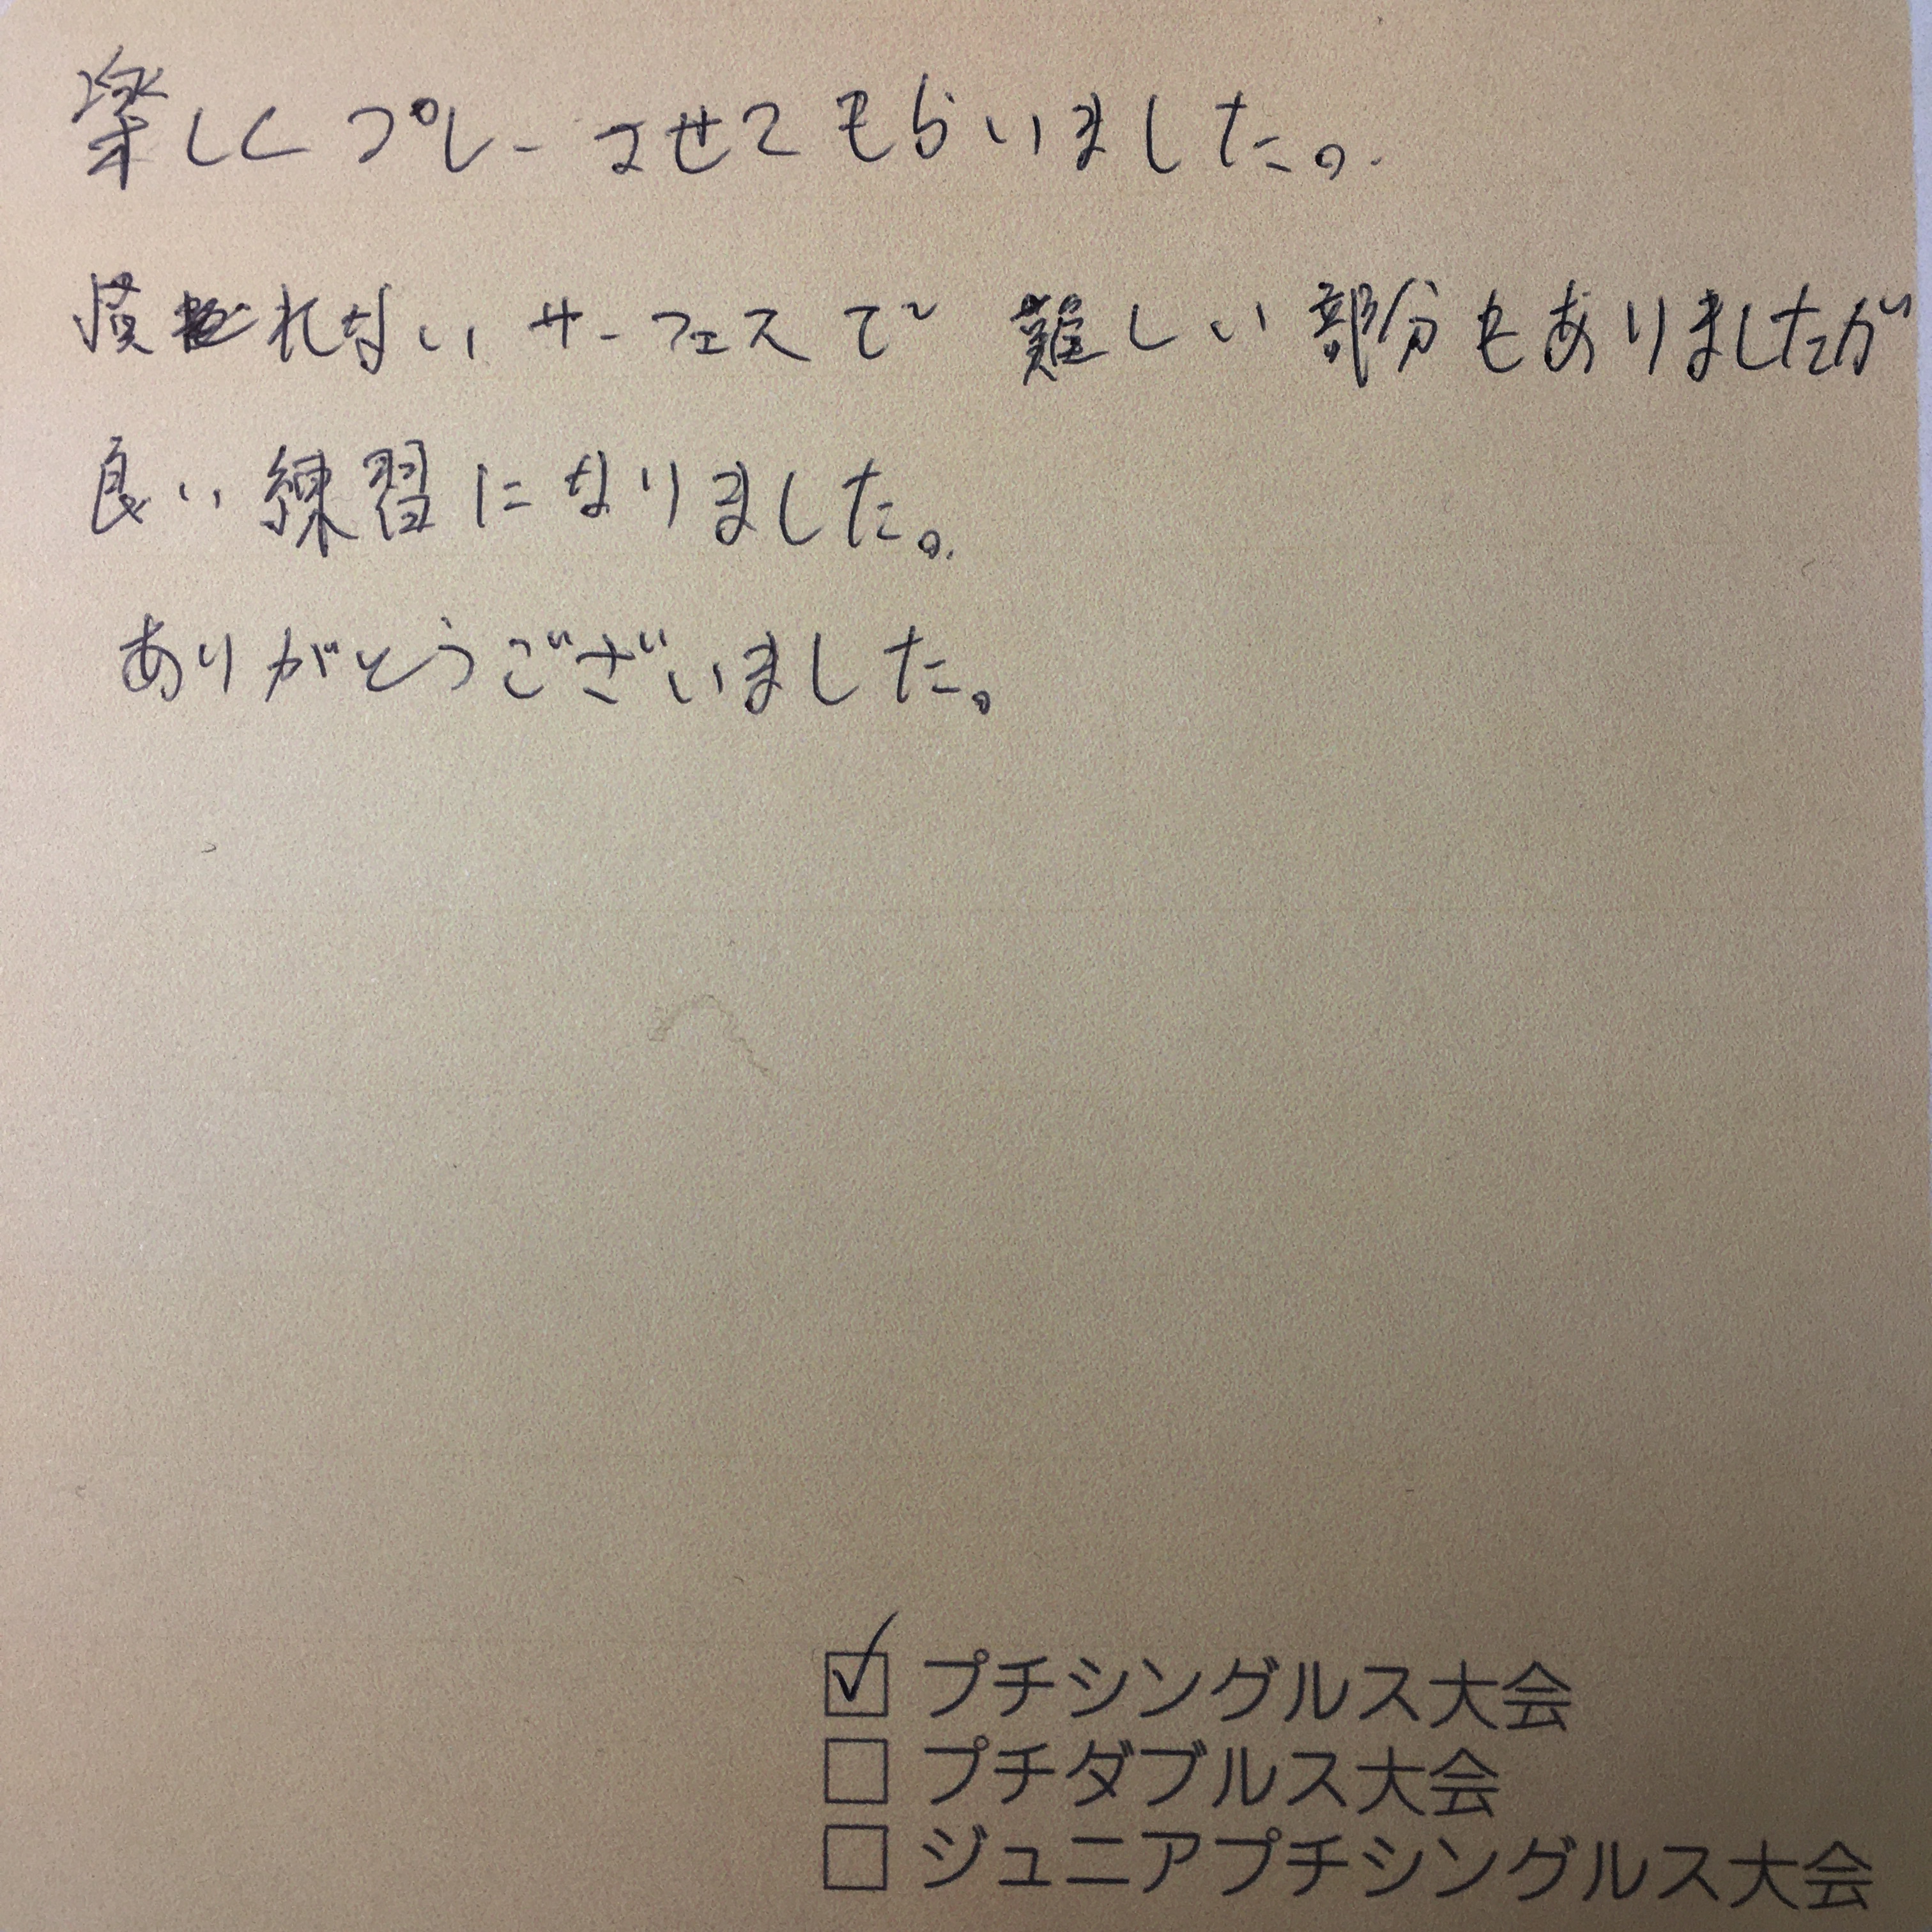 楽しくプレーさせてもらいました。
慣れないサーフェスで難しい部分もありましたが
良い練習になりました。
ありがとうございました。
☑ プチシングルス大会
☐ プチダブルス大会
☐ ジュニアプチシングルス大会